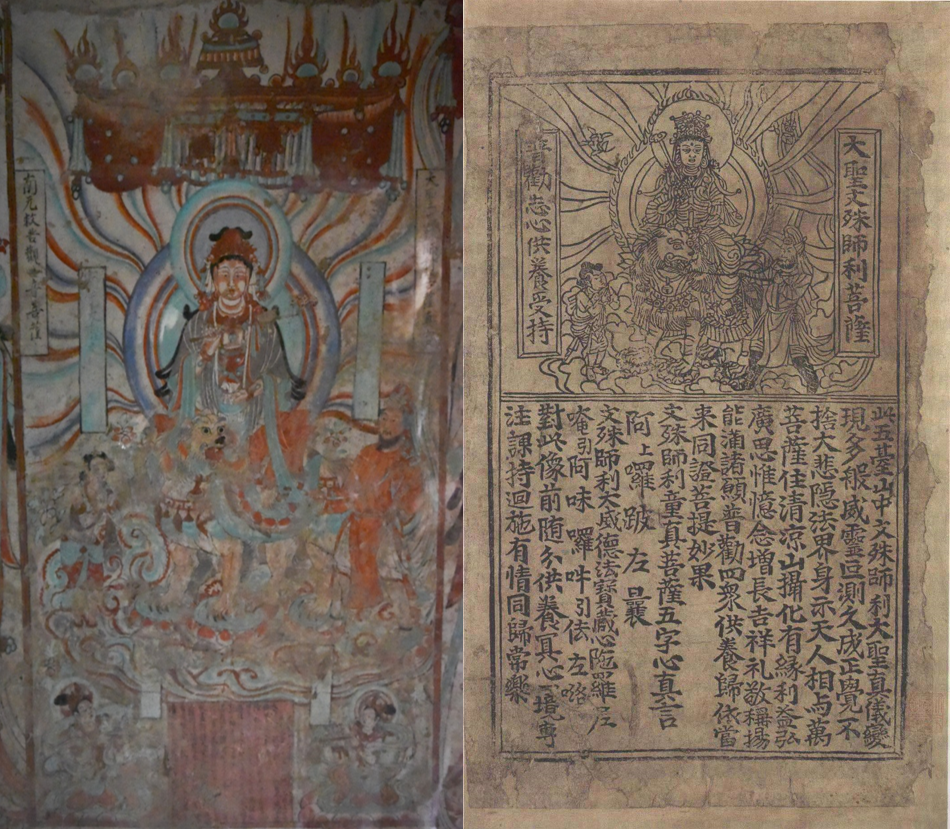 南无救苦觀世音菩薩
大
大聖文殊師利菩薩
普勸志心供養受持
此五臺山中文殊師利大聖真儀變
現多般威靈叵測久成正覺不
捨大悲隱法界身示天人相与萬
菩薩住清凉山攝化有緣利益弘
廣思惟憶念增長吉祥礼敬稱揚
能滿諸願普勸四衆供養歸依當
來同證菩提妙果
文殊師利童真菩薩五字心真言
阿上囉 跛 左 曩
文殊師利大威德法寶藏心陁羅尼
唵引阿味囉吽引佉左
對此像前随分供養冥心一境專
注課持迴施有情同歸常樂